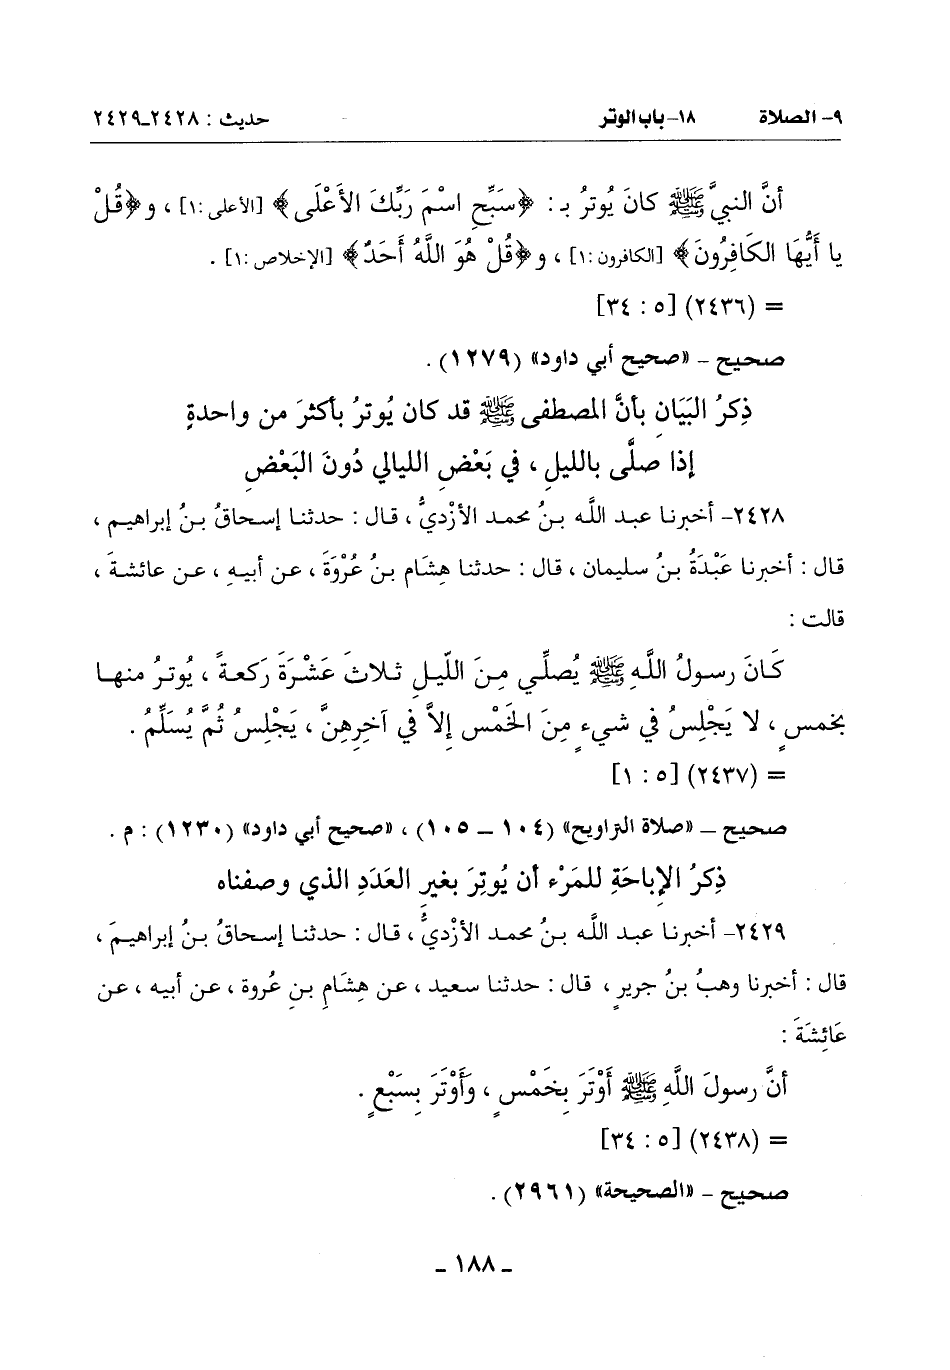 ٩- الصلاة ١٨- باب الوتر حديث : ٢٤٢٨-٢٤٢٩
أنَّ النبيَّ ﷺ كانَ يُوترُ بـ : ﴿سَبِّحِ اسْمَ رَبِّكَ الأَعْلَى﴾ [الأعلى :١] ، و﴿قُلْ
يا أَيُّهَا الكَافِرُونَ﴾ [الكافرون :١] ، و﴿قُلْ هُوَ اللَّهُ أَحَدٌ﴾ [الإخلاص :١] .
= (٢٤٣٦) [٥ : ٣٤]
صحيح – «صحيح أبي داود» (١٢٧٩) .
ذِكرُ البَيَانِ بأنَّ المصطفى ﷺ قد كان يُوترُ بأكثرَ من واحدةٍ
إذا صلَّى بالليلِ ، في بَعْضِ الليالي دُونَ البَعْضِ
٢٤٢٨- أخبرنا عبد اللَّه بنُ محمد الأزْديُّ ، قال : حدثنا إسحاقُ بنُ إبراهيم ،
قال : أخبرنا عَبْدَةُ بنُ سليمان ، قال : حدثنا هِشَام بنُ عُرْوَةَ ، عن أبيهِ ، عن عائشةَ ،
قالت :
كَانَ رسولُ اللَّهِ ﷺ يُصلِّي مِنَ اللَّيلِ ثلاثَ عَشْرَةَ رَكعةً ، يُوترُ منها
بخمسٍ ، لا يَجْلِسُ في شيءٍ مِنَ الخَمْسِ إلاَّ في آخِرِهِنَّ ، يَجْلِسُ ثُمَّ يُسَلِّمُ .
= (٢٤٣٧) [٥ : ١]
صحيح – «صلاة التراويح» (١٠٤ – ١٠٥) ، «صحيح أبي داود» (١٢٣٠) : م .
ذِكرُ الإباحَةِ للمَرْءِ أن يُوتِرَ بغيرِ العَدَدِ الذي وصفناه
٢٤٢٩- أخبرنا عبد اللَّه بنُ محمد الأزْديُّ ، قال : حدثنا إسحاقُ بنُ إبراهيمَ ،
قال : أخبرنا وهبُ بنُ جريرٍ ، قال : حدثنا سعيد ، عن هِشَامِ بنِ عُروة ، عن أبيه ، عن
عَائِشَةَ :
أنَّ رسولَ اللَّهِ ﷺ أَوْتَرَ بِخَمْسٍ ، وَأَوْتَرَ بِسَبْعٍ .
= (٢٤٣٨) [٥ : ٣٤]
صحيح – «الصحيحة» (٢٩٦١) .
ـ ١٨٨ ـ